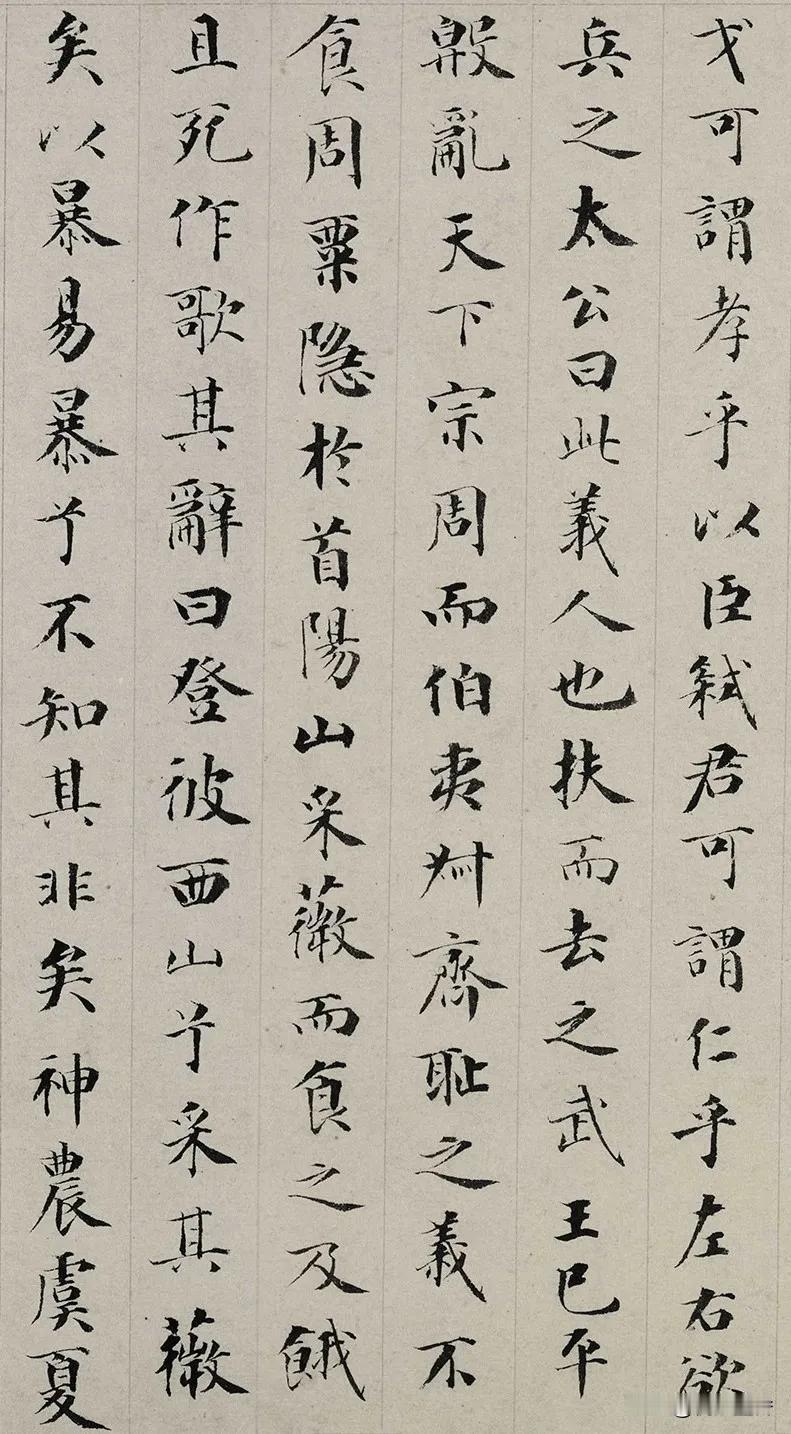 戈可謂孝乎以臣弑君可謂仁乎左右欲
兵之太公曰此義人也扶而去之武王已平
殷亂天下宗周而伯夷叔齊恥之義不
食周粟隱於首陽山采薇而食之及餓
且死作歌其辭曰登彼西山兮采其薇
矣以暴易暴兮不知其非矣神農虞夏